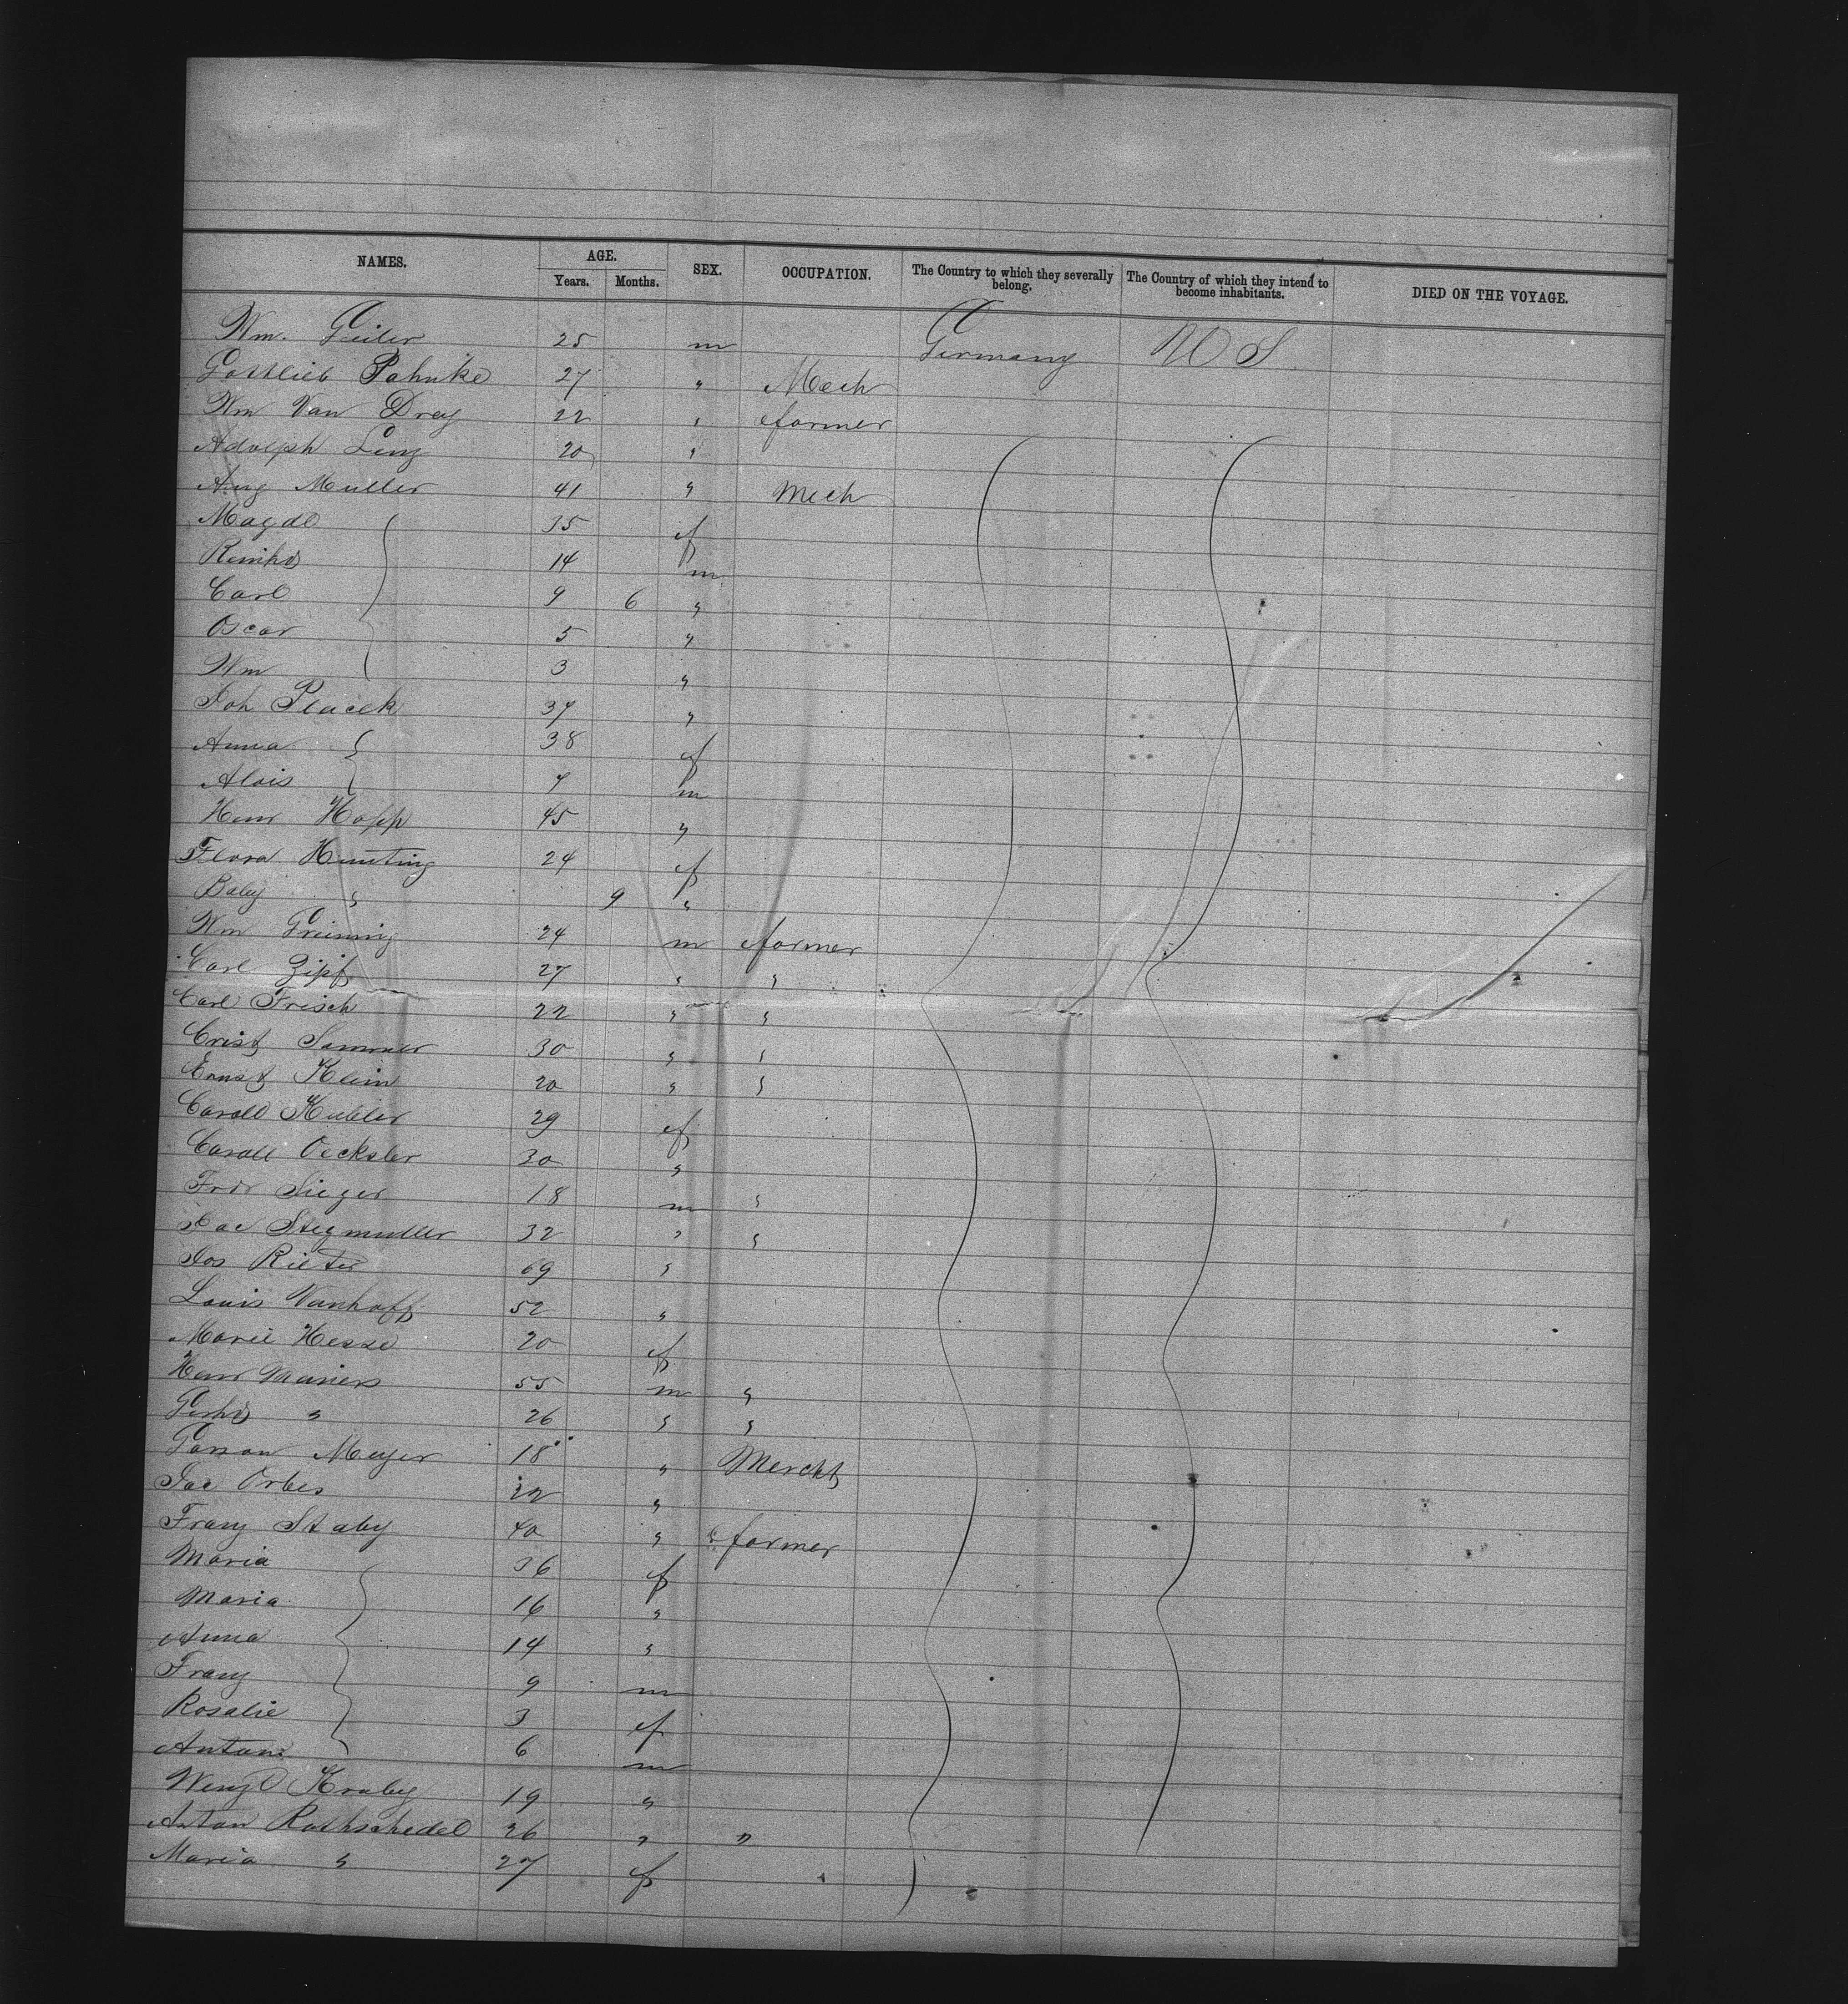 NAMES. AGE. Years. Months. SEX. OCCUPATION. The Country to which they severally belong. The Country of which they intend to become inhabitants. DIED ON THE VOYAGE.
Wm. Geiler 25 m Germany U S
Gottlieb Pahnke 27 " Mech
Wm Van Drey 22 " farmer
Adolph Lenz 20 "
Aug Muller 41 " Mech
Magd 35 f
Reinhd 14 m
Carl 9 6 "
Oscar 5 "
Wm 3 "
Joh Placek 37 "
Anna 38 f
Alois 7 m
Henr Hopp 45 "
Flora Hunting 24 f
Baby " 9 "
Wm Greining 24 m farmer
Carl Zipf 27 " "
Carl Frisch 22 " "
Crist Sammer 30 " "
Ernst Klein 20 " "
Caroll Kubler 29 f
Caroll Oecksler 30 "
Frdr Sieger 18 m "
Jac Stegmuller 32 " "
Jos Rieter 69 "
Louis Vanhoff 52 "
Marie Hesse 20 f
Henr Meiners 55 m "
Gerhd " 26 " "
Garson Meyer 18 " Mercht
Jac Orbes 22 "
Franz Staby 40 " farmer
Maria 36 f
Maria 16 "
Anna 14 "
Franz 9 m
Rosalie 3 f
Anton 6 m
Wenzl Kraby 19 "
Anton Rothschedel 26 " "
Maria " 27 f